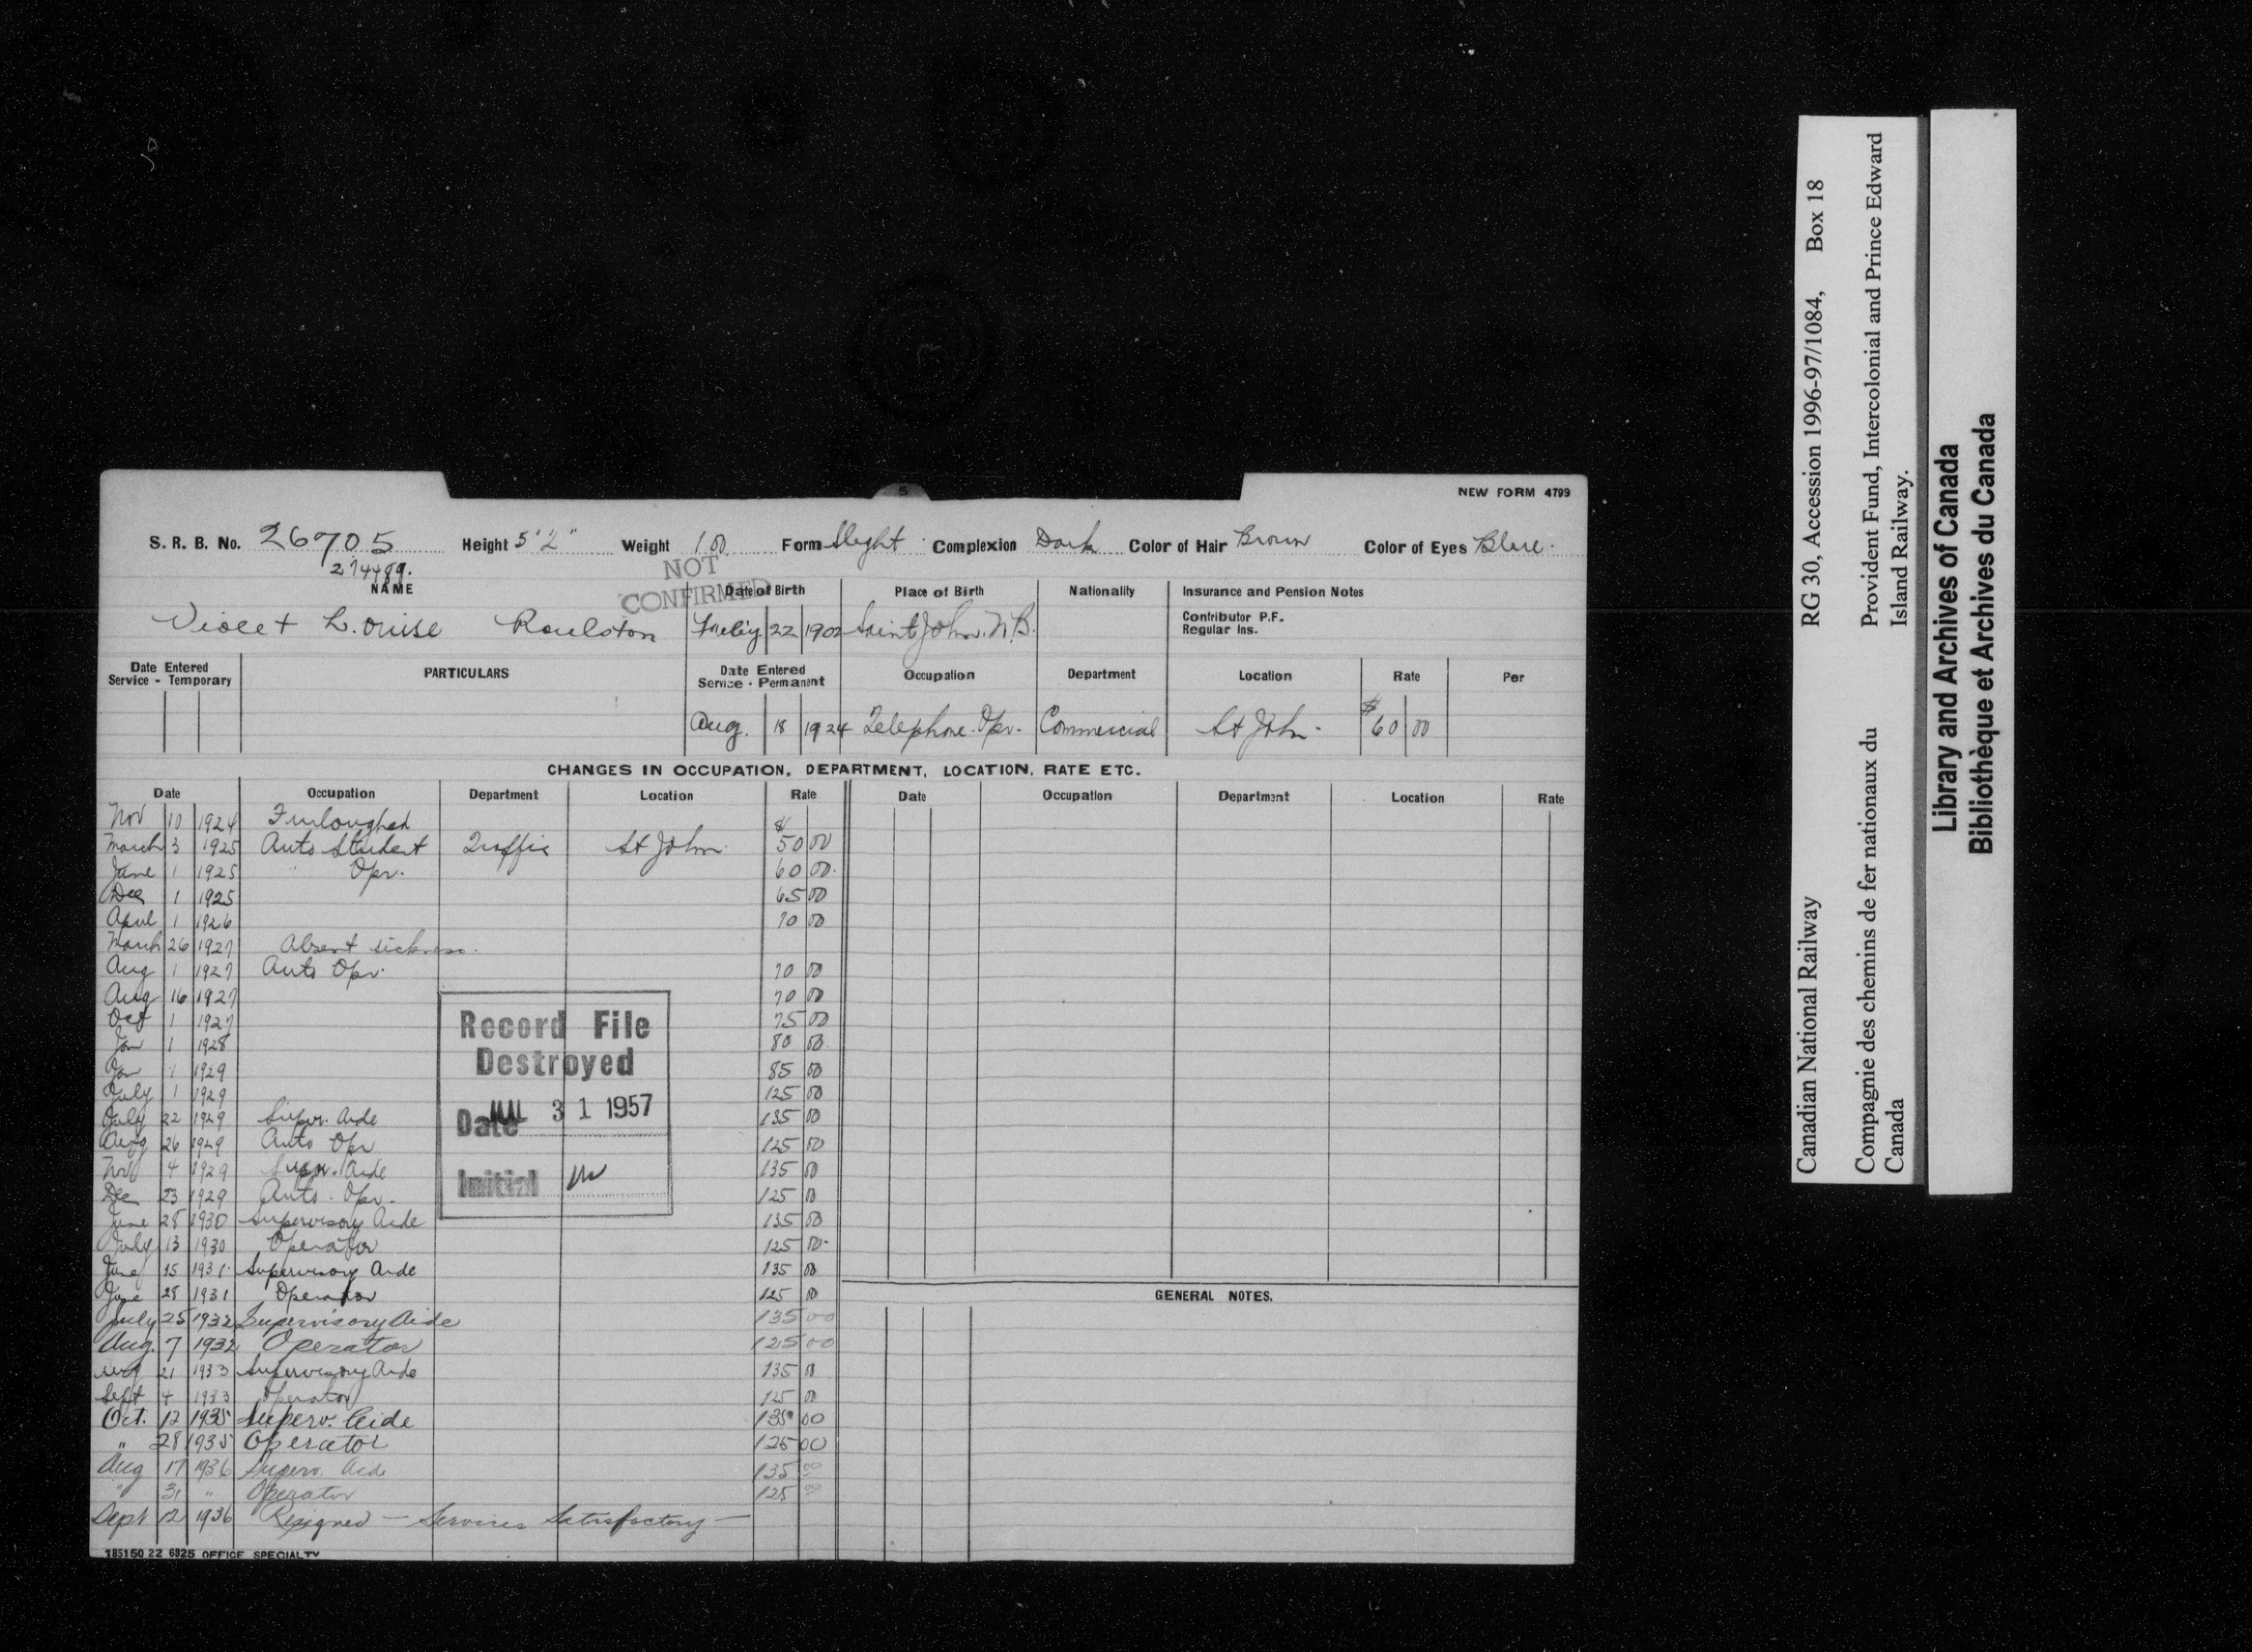 NEW FORM 4799
S. R. B. No. 26705 Height 5'2" Weight 100 Form Slight Complexion Dark Color of Hair Brown Color of Eyes Blue.
274489.
NOT CONFIRMED
NAME Date of Birth Place of Birth Nationality Insurance and Pension Notes
Violet Louise Roulston July 22 1902 Saint John. N.B. Contributor P.F.
Regular Ins.
Date Entered Service - Temporary PARTICULARS Date Entered Service - Permanent Occupation Department Location Rate Per
Aug. 18 1924 Telephone. Opr. Commercial St John. $ 60 00
CHANGES IN OCCUPATION, DEPARTMENT, LOCATION, RATE ETC.
Date Occupation Department Location Rate Date Occupation Department Location Rate
Nov 10 1924 Furloughed $
March 3 1925 Auto Student Traffic St John. 50 00
June 1 1925 " Opr. 60 00.
Dec 1 1925 65 00
April 1 1926 70 00
March 26 1927 Absent sickness.
Aug 1 1927 Auto Opr. 70 00
Aug 16 1927 70 00
Oct 1 1927 75 00
Jan 1 1928 80 00
Jan 1 1929 85 00
July 1 1929 125 00
July 22 1929 Super. Aide 135 00
Aug 26 1929 Auto Opr 125 00
Nov 4 1929 Super. Aide 135 00
Dec 23 1929 Auto. Opr. 125 00
June 28 1930 Supervisory Aide 135 00
July 13 1930 Operator 125 00
June 15 1931 Supervisory Aide 135 00
June 28 1931 Operator 125 00
July 25 1932 Supervisory Aide 135 00
Aug. 7 1932 Operator 125 00
Aug 21 1933 Supervisory Aide 135 00
Sept 4 1933 Operator 125 00
Oct. 12 1935 Superv. Aide 135 00
" 28 1935 Operator 125 00
Aug 17 1936 Superv. Aid 135 00
" 31 " Operator 125 00
Sept 12 1936 Resigned — Services Satisfactory —
Record File
Destroyed
Date JUL 31 1957
Initial
GENERAL NOTES.
185150 22 6825 OFFICE SPECIALTY
Canadian National Railway RG 30, Accession 1996-97/1084, Box 18
Compagnie des chemins de fer nationaux du Provident Fund, Intercolonial and Prince Edward
Canada Island Railway.
Library and Archives of Canada
Bibliothèque et Archives du Canada